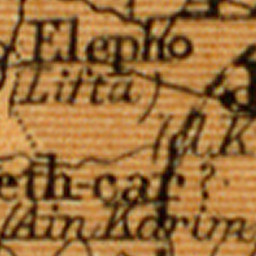 Elepho
(Lifta)
(el K
eth-car?
(Ain Karim